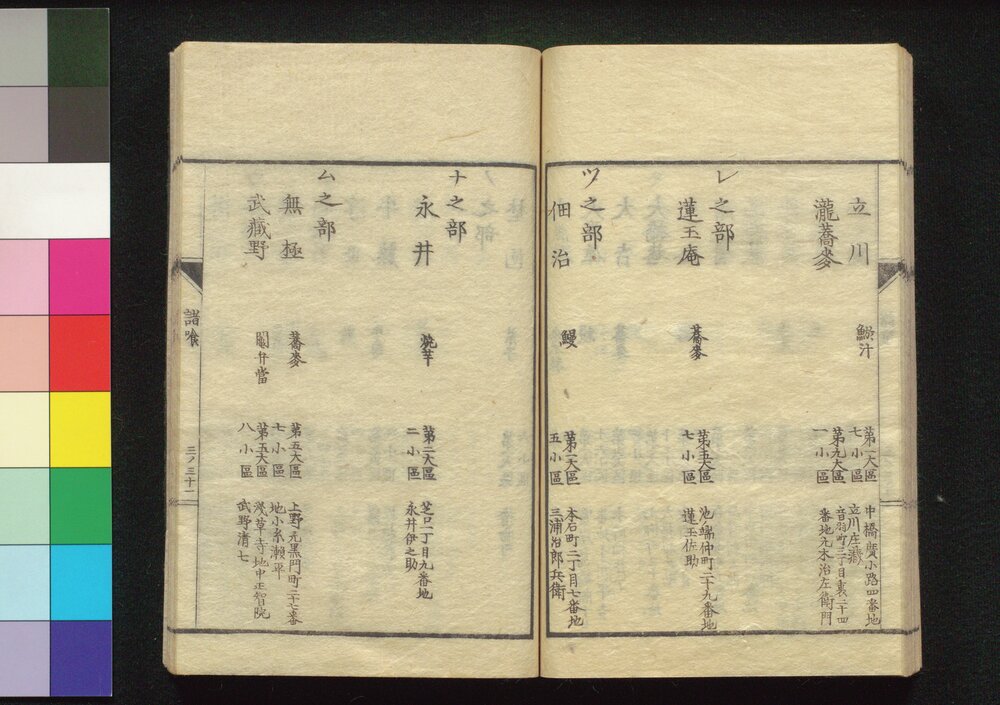 立川
鰌汁
第一大區
七小區
中橋廣小路四番地
立川庄藏
瀧蕎麥
第九大區
一小區
音羽町三丁目裏二十四
番地九木治左衛門
レ之部
蓮玉庵
蕎麥
第五大區
七小區
池ノ端仲町二十九番地
蓮玉佐助
ツ之部
佃治
鰻
第一大區
五小區
本石町二丁目七番地
三浦治郎兵衛
ナ之部
永井
燒芋
第二大區
二小區
芝口一丁目九番地
永井伊之助
ム之部
無極
蕎麥
第五大區
七小區
上野元黒門町二十七番
地小糸瀬平
武藏野
弁當
第五大區
八小區
淺草寺地中正智院
武野清七
諸喰
三ノ三十一